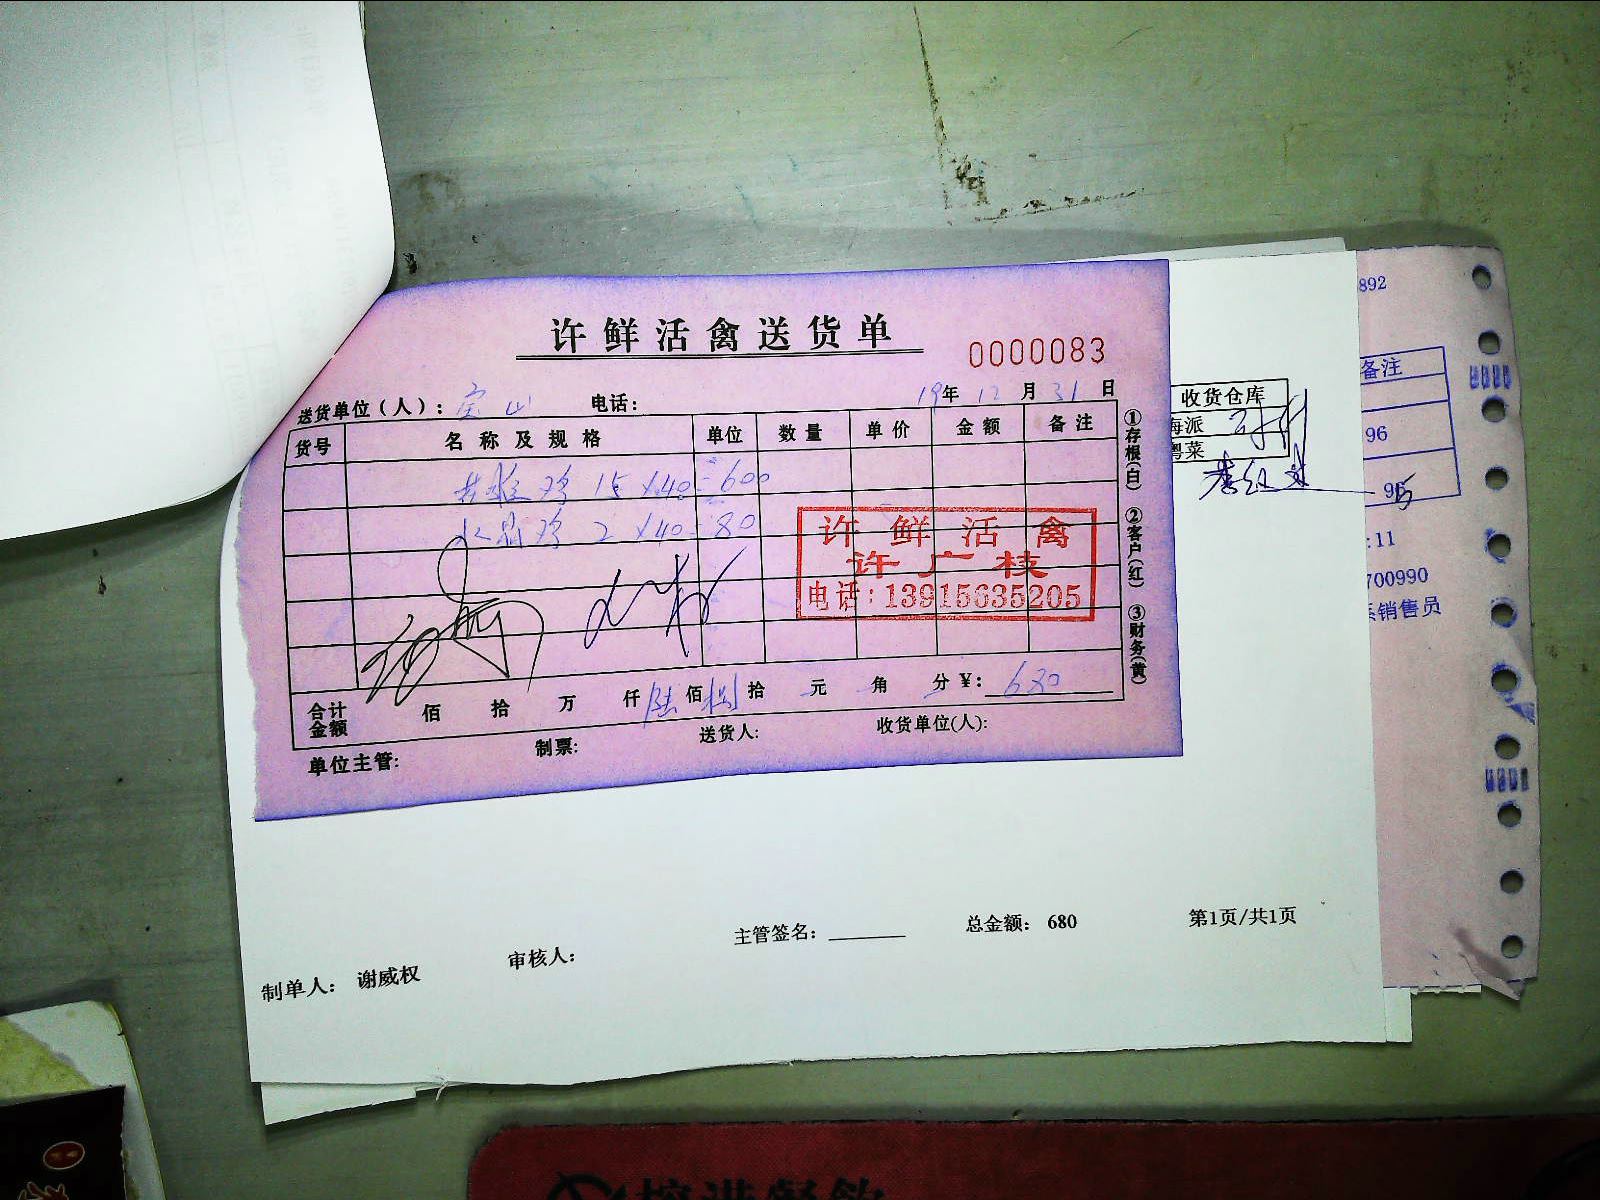 许鲜活禽送货单
0000083
送货单位（人）：宝山 电话： 19年12月31日
货号 名称及规格 单位 数量 单价 金额 备注
鸡 15×40=600
鸡 2×40=80
许鲜活禽
许广枝
电话：13915635205
合计金额 佰 拾 万 仟 陆佰捌拾 元 角 分 ¥： 680
单位主管： 制票： 送货人： 收货单位(人)：
①存根(白) ②客户(红) ③财务(黄)
收货仓库
海派
粤菜
892
备注
96
:11
700990
销售员
主管签名： 总金额： 680 第1页/共1页
制单人： 谢威权 审核人：